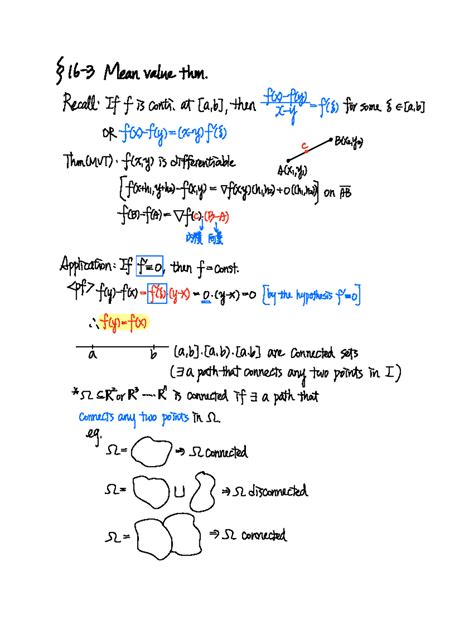 § 16-3 Mean value thm.
Recall: If f is conti. at [a,b], then f(x)-f(y)/x-y = f'(ξ) for some ξ ∈ [a,b]
OR f(x)-f(y)=(x-y)f'(ξ)
B(x2,y2)
C
A(x1,y1)
Thm(MVT): f(x,y) is differentiable
[f(x+h1,y+h2)-f(x,y)=∇f(x,y)(h1,h2)+o(h1,h2)] on AB
f(B)-f(A)=∇f(c)·(B-A)
內積 向量
Application: If f'≡0, then f=const.
<pf> f(y)-f(x)=f'(ξ)·(y-x)=0·(y-x)=0 [by the hypothesis f'≡0]
∴ f(y)=f(x)
a b [a,b].[a,b).(a,b] are connected sets
(∃ a path that connects any two points in I)
*Ω⊆R² or R³ ---- Rⁿ is connected if ∃ a path that
connects any two points in Ω.
eg.
Ω= ⇒ Ω connected
Ω= ⊔ ⇒ Ω disconnected
Ω= ⇒ Ω connected